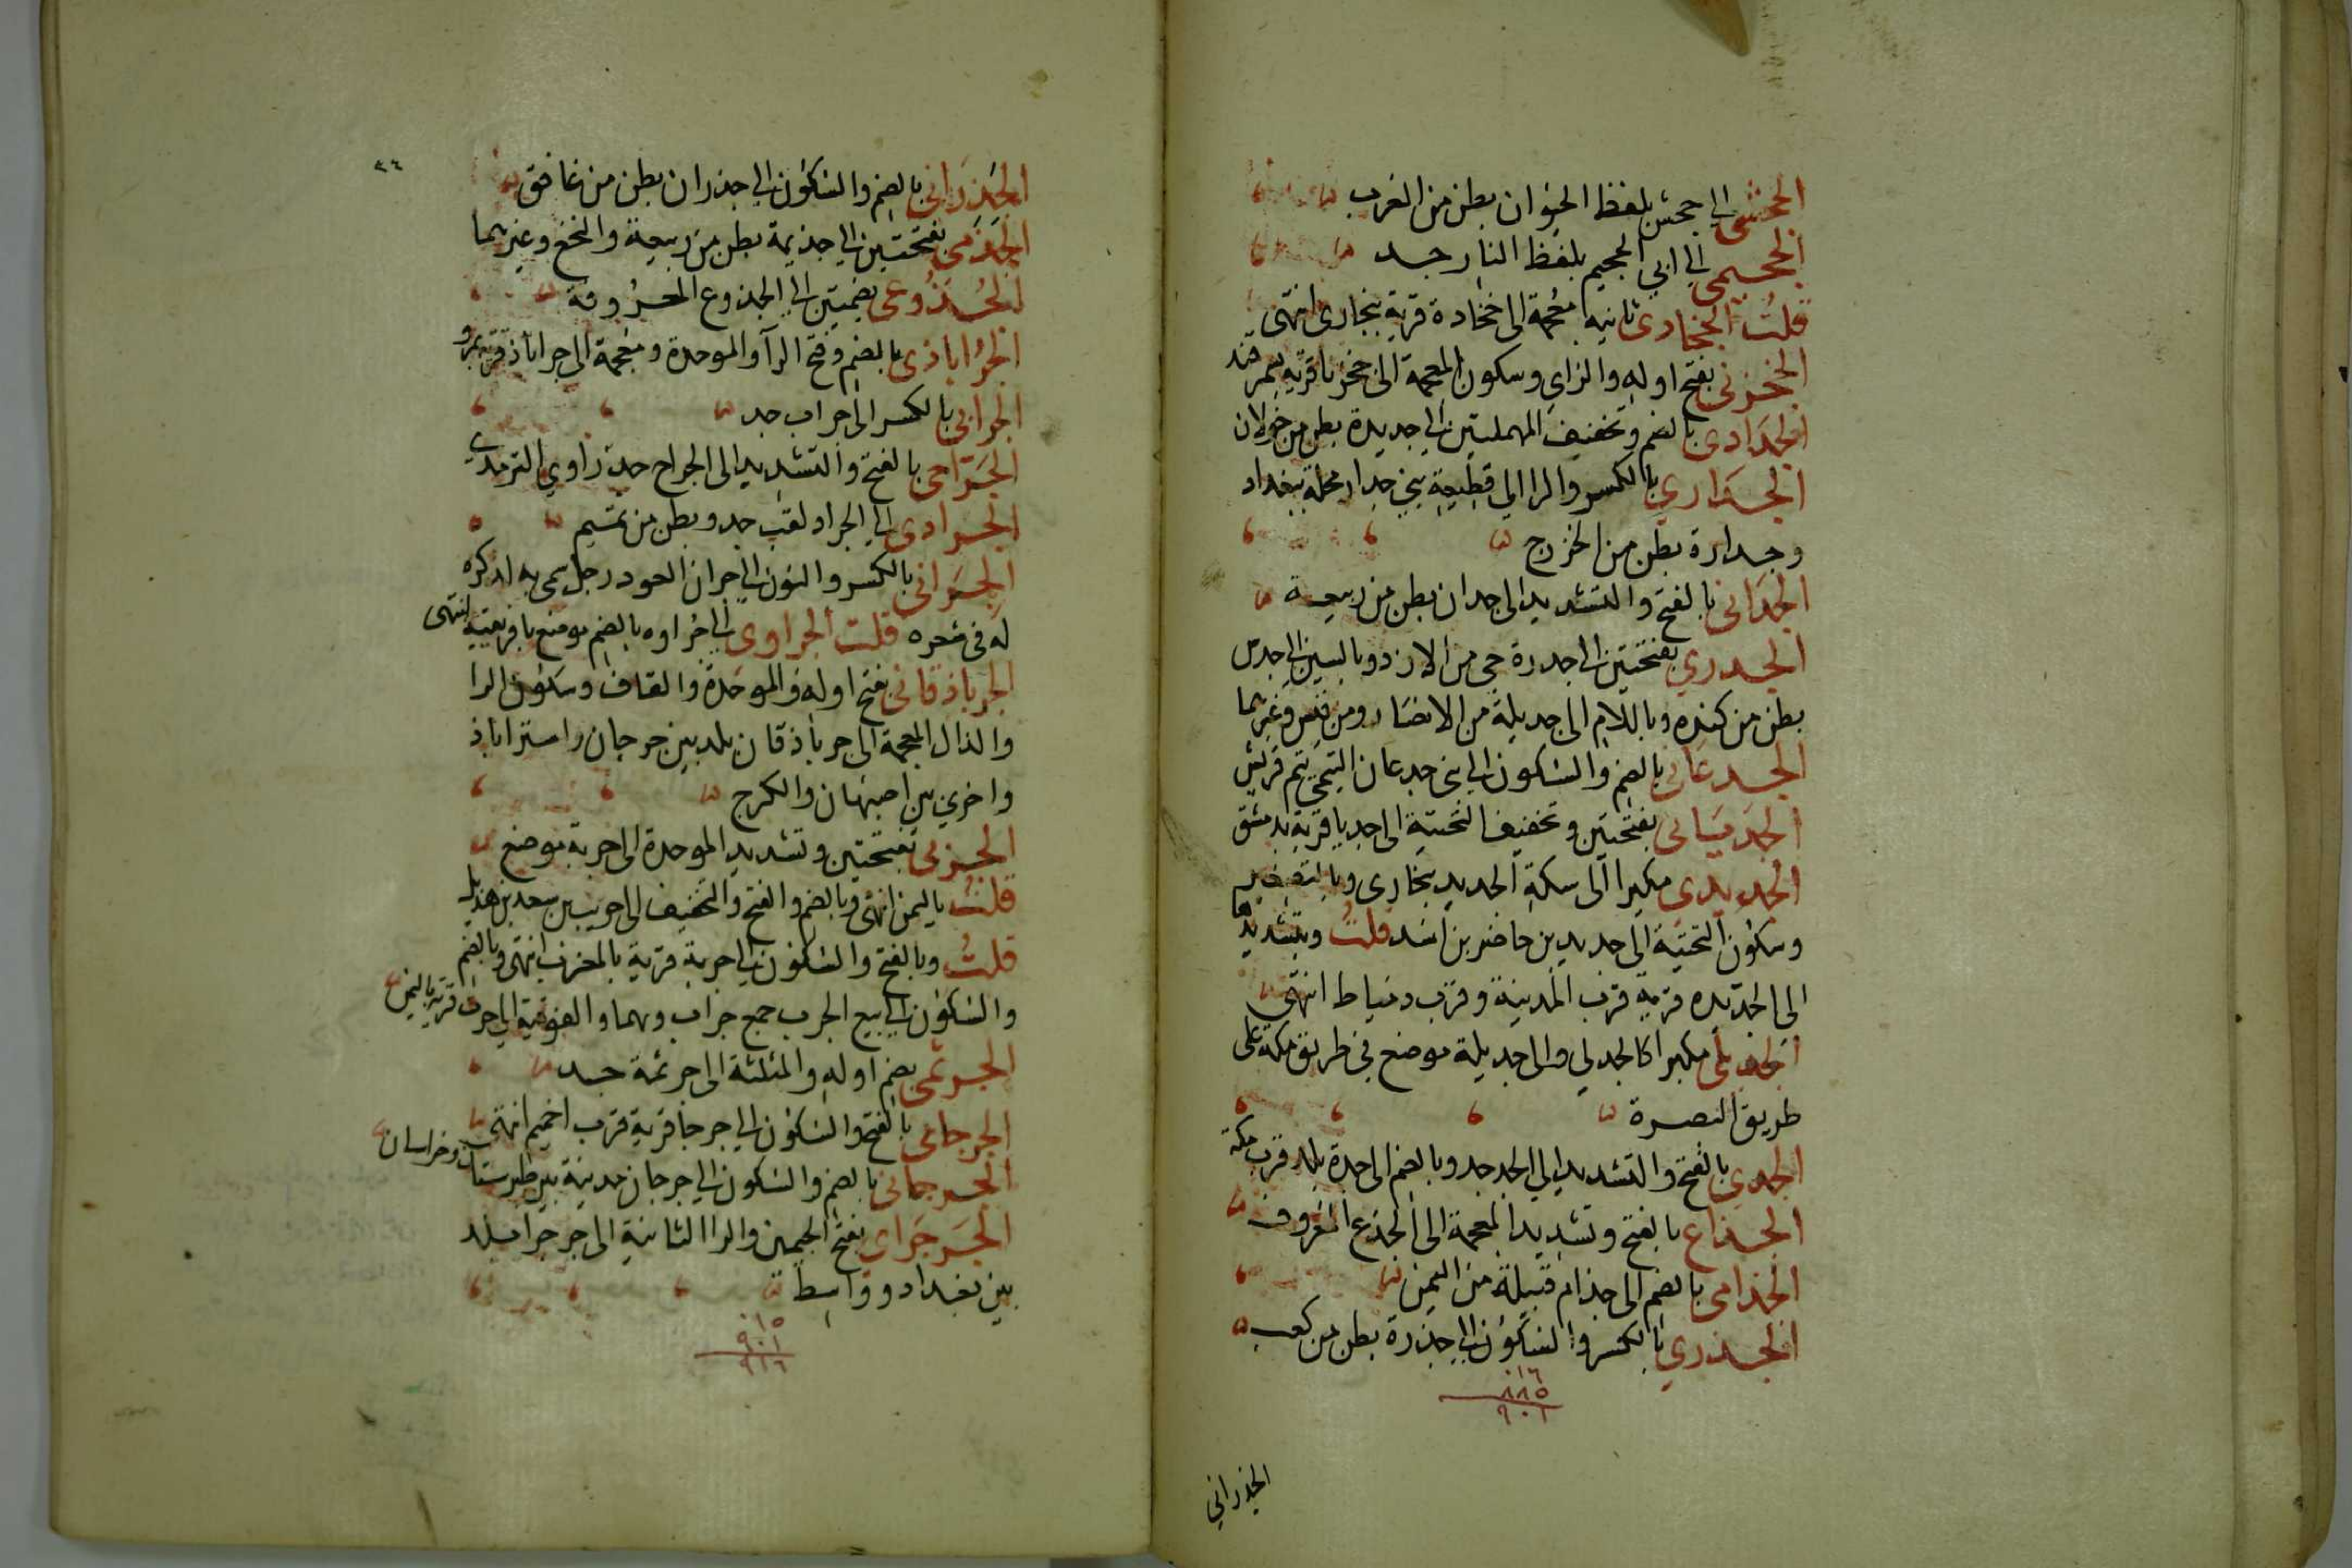 الجحشي الى جحش بلفظ الحيوان بطن من العرب
الجحيمي الى ابي الجحيم بلفظ النار جد
قلت الجخادي ثانيه معجمة الى جخادة قرية ببخارى انتهى
الجخزني بفتح اوله والزاي وسكون المعجمة الى جخزنا قرية بسمرقند
الجدادي بالضم وتخفيف المهملتين الى جديدة بطن من خولان
الجداري بالكسر والرا الى قطيعة بني جدار محلة ببغداد
وجدارة بطن من الخزرج
الجداني بالفتح والتشديد الى جدان بطن من ربيعة
الجدري بفتحتين الى جدرة حي من الازد وبالسين الى جدس
بطن من كنده وباللام الى جديلة من الانصار ومن قيس وغيرهما
الجدعاني بالضم والسكون الى بني جدعان التيمي تيم قريش
الجديباني بفتحتين وتخفيف التحتية الى جديا قرية بدمشق
الجديدي مكبرا الى سكة الجديد ببخارى وبالتصغير
وسكون التحتية الى جديد بن حاضر بن اسد قلت وبتشديدها
الى الجديده قرية قرب المدينة وقرب دمياط انتهى
الجديلي مكبرا كالجدلي والى جديلة موضع في طريق مكة على
طريق البصرة
الجدي بالفتح والتشديد الى الجد جد وبالضم الى جدة بلد قرب مكة
الجذاع بالفتح وتشديد المعجمة الى الجذع المعروف
الجذامي بالضم الى جذام قبيلة من اليمن
الجذري بالكسر والسكون الى جذرة بطن من كعب
١٦
٨٨٥
٩٠١
الجذراني
٤٤
الجذراني بالضم والسكون الى جذران بطن من غافق
الجذمي بفتحتين الى جذيمة بطن من ربيعة والنخع وغيرهما
الجذوعي بضمتين الى الجذوع المعروفة
الجراباذي بالضم وفتح الرآ والموحدة ومعجمة الى جراباذ قرية بمرو
الجرابي بالكسر الى جراب جد
الجراحي بالفتح والتشديد الى الجراح جد راوي الترمذي
الجرادي الى الجراد لقب جد وبطن من تميم
الجراني بالكسر والنون الى جران العود رجل سمي به لذكره
له في شعره قلت الجراوي الى جراوه بالضم موضع بافريقية انتهى
الجرباذقاني بفتح اوله والموحدة والقاف وسكون الرا
والذال المعجمة الى جرباذقان بلد بين جرجان واستراباذ
واخرى بين اصبهان والكرج
الجربي بفتحتين وتشديد الموحدة الى جربة موضع
قلت باليمن انتهى وبالضم والفتح والتخفيف الى جريب بن سعد بن هذيل
قلت وبالفتح والسكون الى جربة قرية بالمغرب انتهى وبالضم
والسكون الى بيع الجرب جمع جراب وبهما والفوقية الى جرت قرية باليمن
الجرثمي بضم اوله والمثلثة الى جرثمة جد
الجرجاي بالفتح والسكون الى جرجا قرية قرب اخميم انتهى
الجرجاني بالضم والسكون الى جرجان مدينة بين طبرستان وخراسان
الجرجراي بفتح الجيمين والرا الثانية الى جرجرا بلد
بين بغداد وواسط
١٥
٩٠١
٩١٦